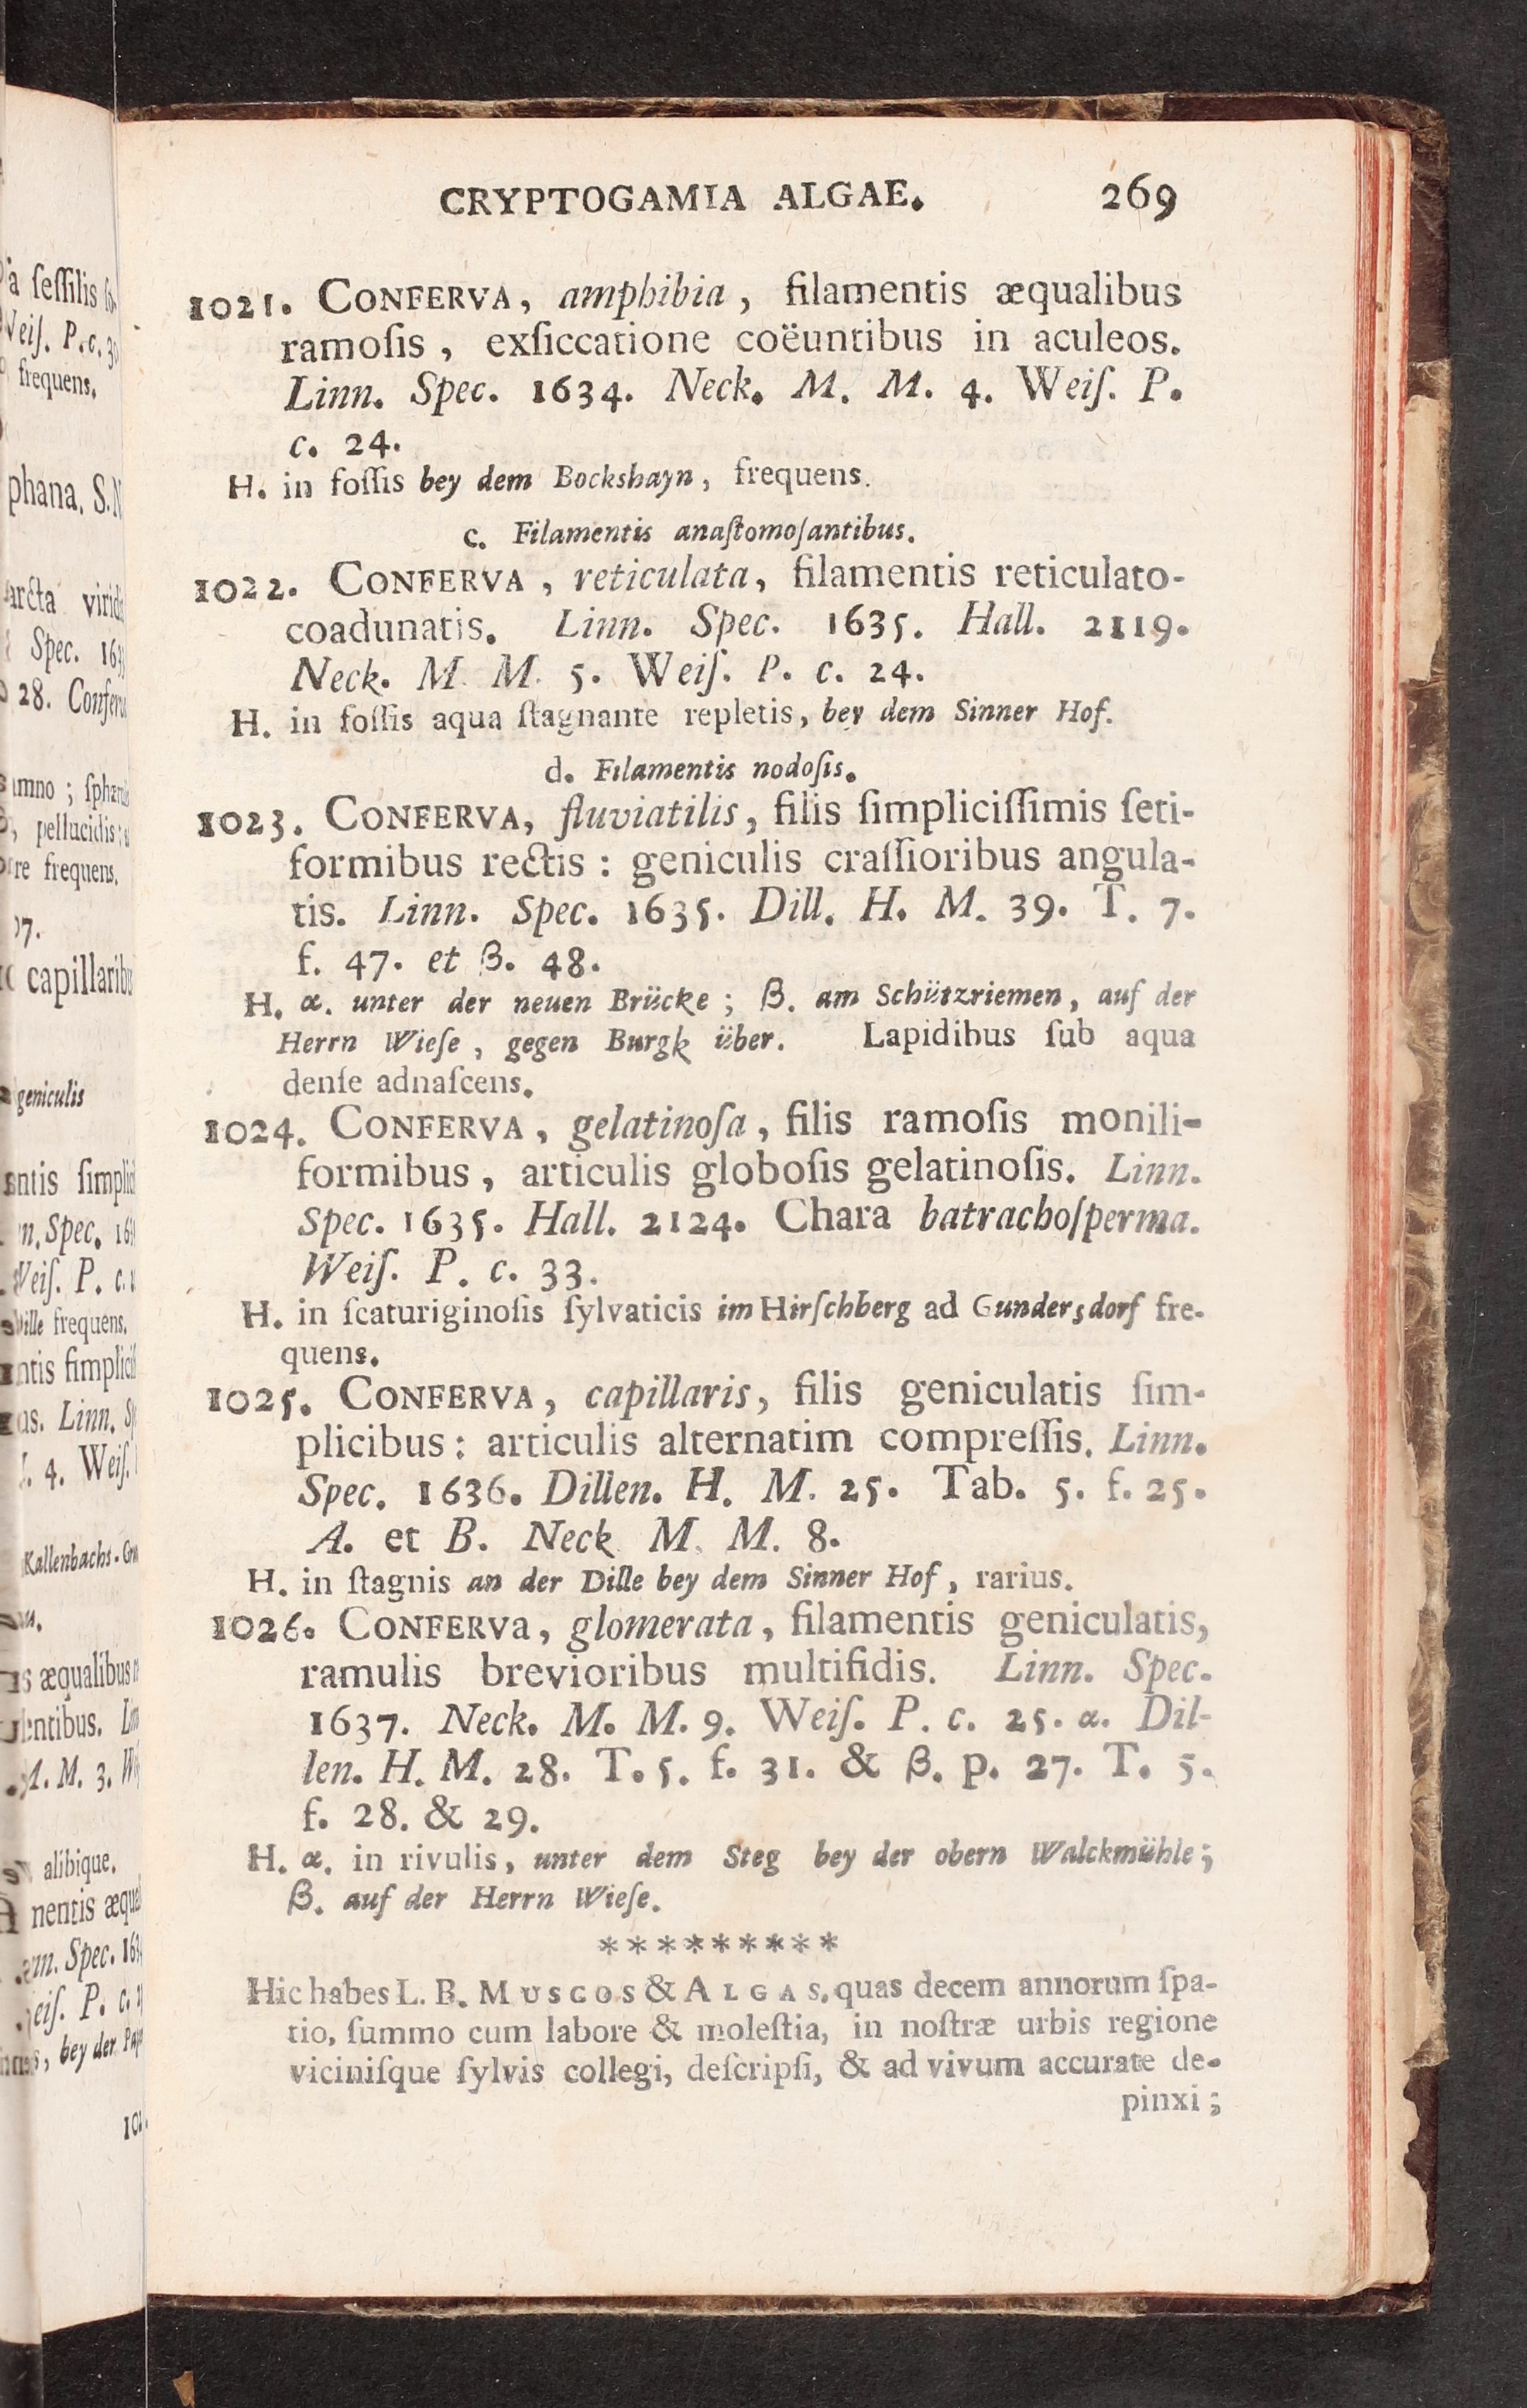 CRYPTOGAMIA ALGAE. 269
1021. CONFERVA, amphibia, filamentis æqualibus
ramoſis, exſiccatione coëuntibus in aculeos.
Linn. Spec. 1634. Neck. M. M. 4. Weiſ. P.
c. 24.
H. in foſſis bey dem Bockshayn, frequens.
c. Filamentis anaſtomoſantibus.
1022. CONFERVA, reticulata, filamentis reticulato-
coadunatis. Linn. Spec. 1635. Hall. 2119.
Neck. M. M. 5. Weiſ. P. c. 24.
H. in foſſis aqua ſtagnante repletis, bey dem Sinner Hof.
d. Filamentis nodoſis.
1023. CONFERVA, fluviatilis, filis ſimpliciſſimis ſeti-
formibus rectis: geniculis craſſioribus angula-
tis. Linn. Spec. 1635. Dill. H. M. 39. T. 7.
f. 47. et β. 48.
H. α. unter der neuen Brücke; β. am Schützriemen, auf der
Herrn Wieſe, gegen Burgk über. Lapidibus ſub aqua
denſe adnaſcens.
1024. CONFERVA, gelatinoſa, filis ramoſis monili-
formibus, articulis globoſis gelatinoſis. Linn.
Spec. 1635. Hall. 2124. Chara batrachoſperma.
Weiſ. P. c. 33.
H. in ſcaturiginoſis ſylvaticis im Hirſchberg ad Gundersdorf fre-
quens.
1025. CONFERVA, capillaris, filis geniculatis ſim-
plicibus: articulis alternatim compreſſis. Linn.
Spec. 1636. Dillen. H. M. 25. Tab. 5. f. 25.
A. et B. Neck. M. M. 8.
H. in ſtagnis an der Dille bey dem Sinner Hof, rarius.
1026. CONFERVA, glomerata, filamentis geniculatis,
ramulis brevioribus multifidis. Linn. Spec.
1637. Neck. M. M. 9. Weiſ. P. c. 25. α. Dil-
len. H. M. 28. T. 5. f. 31. & β. p. 27. T. 5.
f. 28. & 29.
H. α. in rivulis, unter dem Steg bey der obern Walckmühle;
β. auf der Herrn Wieſe.
*********
Hic habes L. B. MUSCOS & ALGAS, quas decem annorum ſpa-
tio, ſummo cum labore & moleſtia, in noſtræ urbis regione
viciniſque ſylvis collegi, deſcripſi, & ad vivum accurate de-
pinxi;